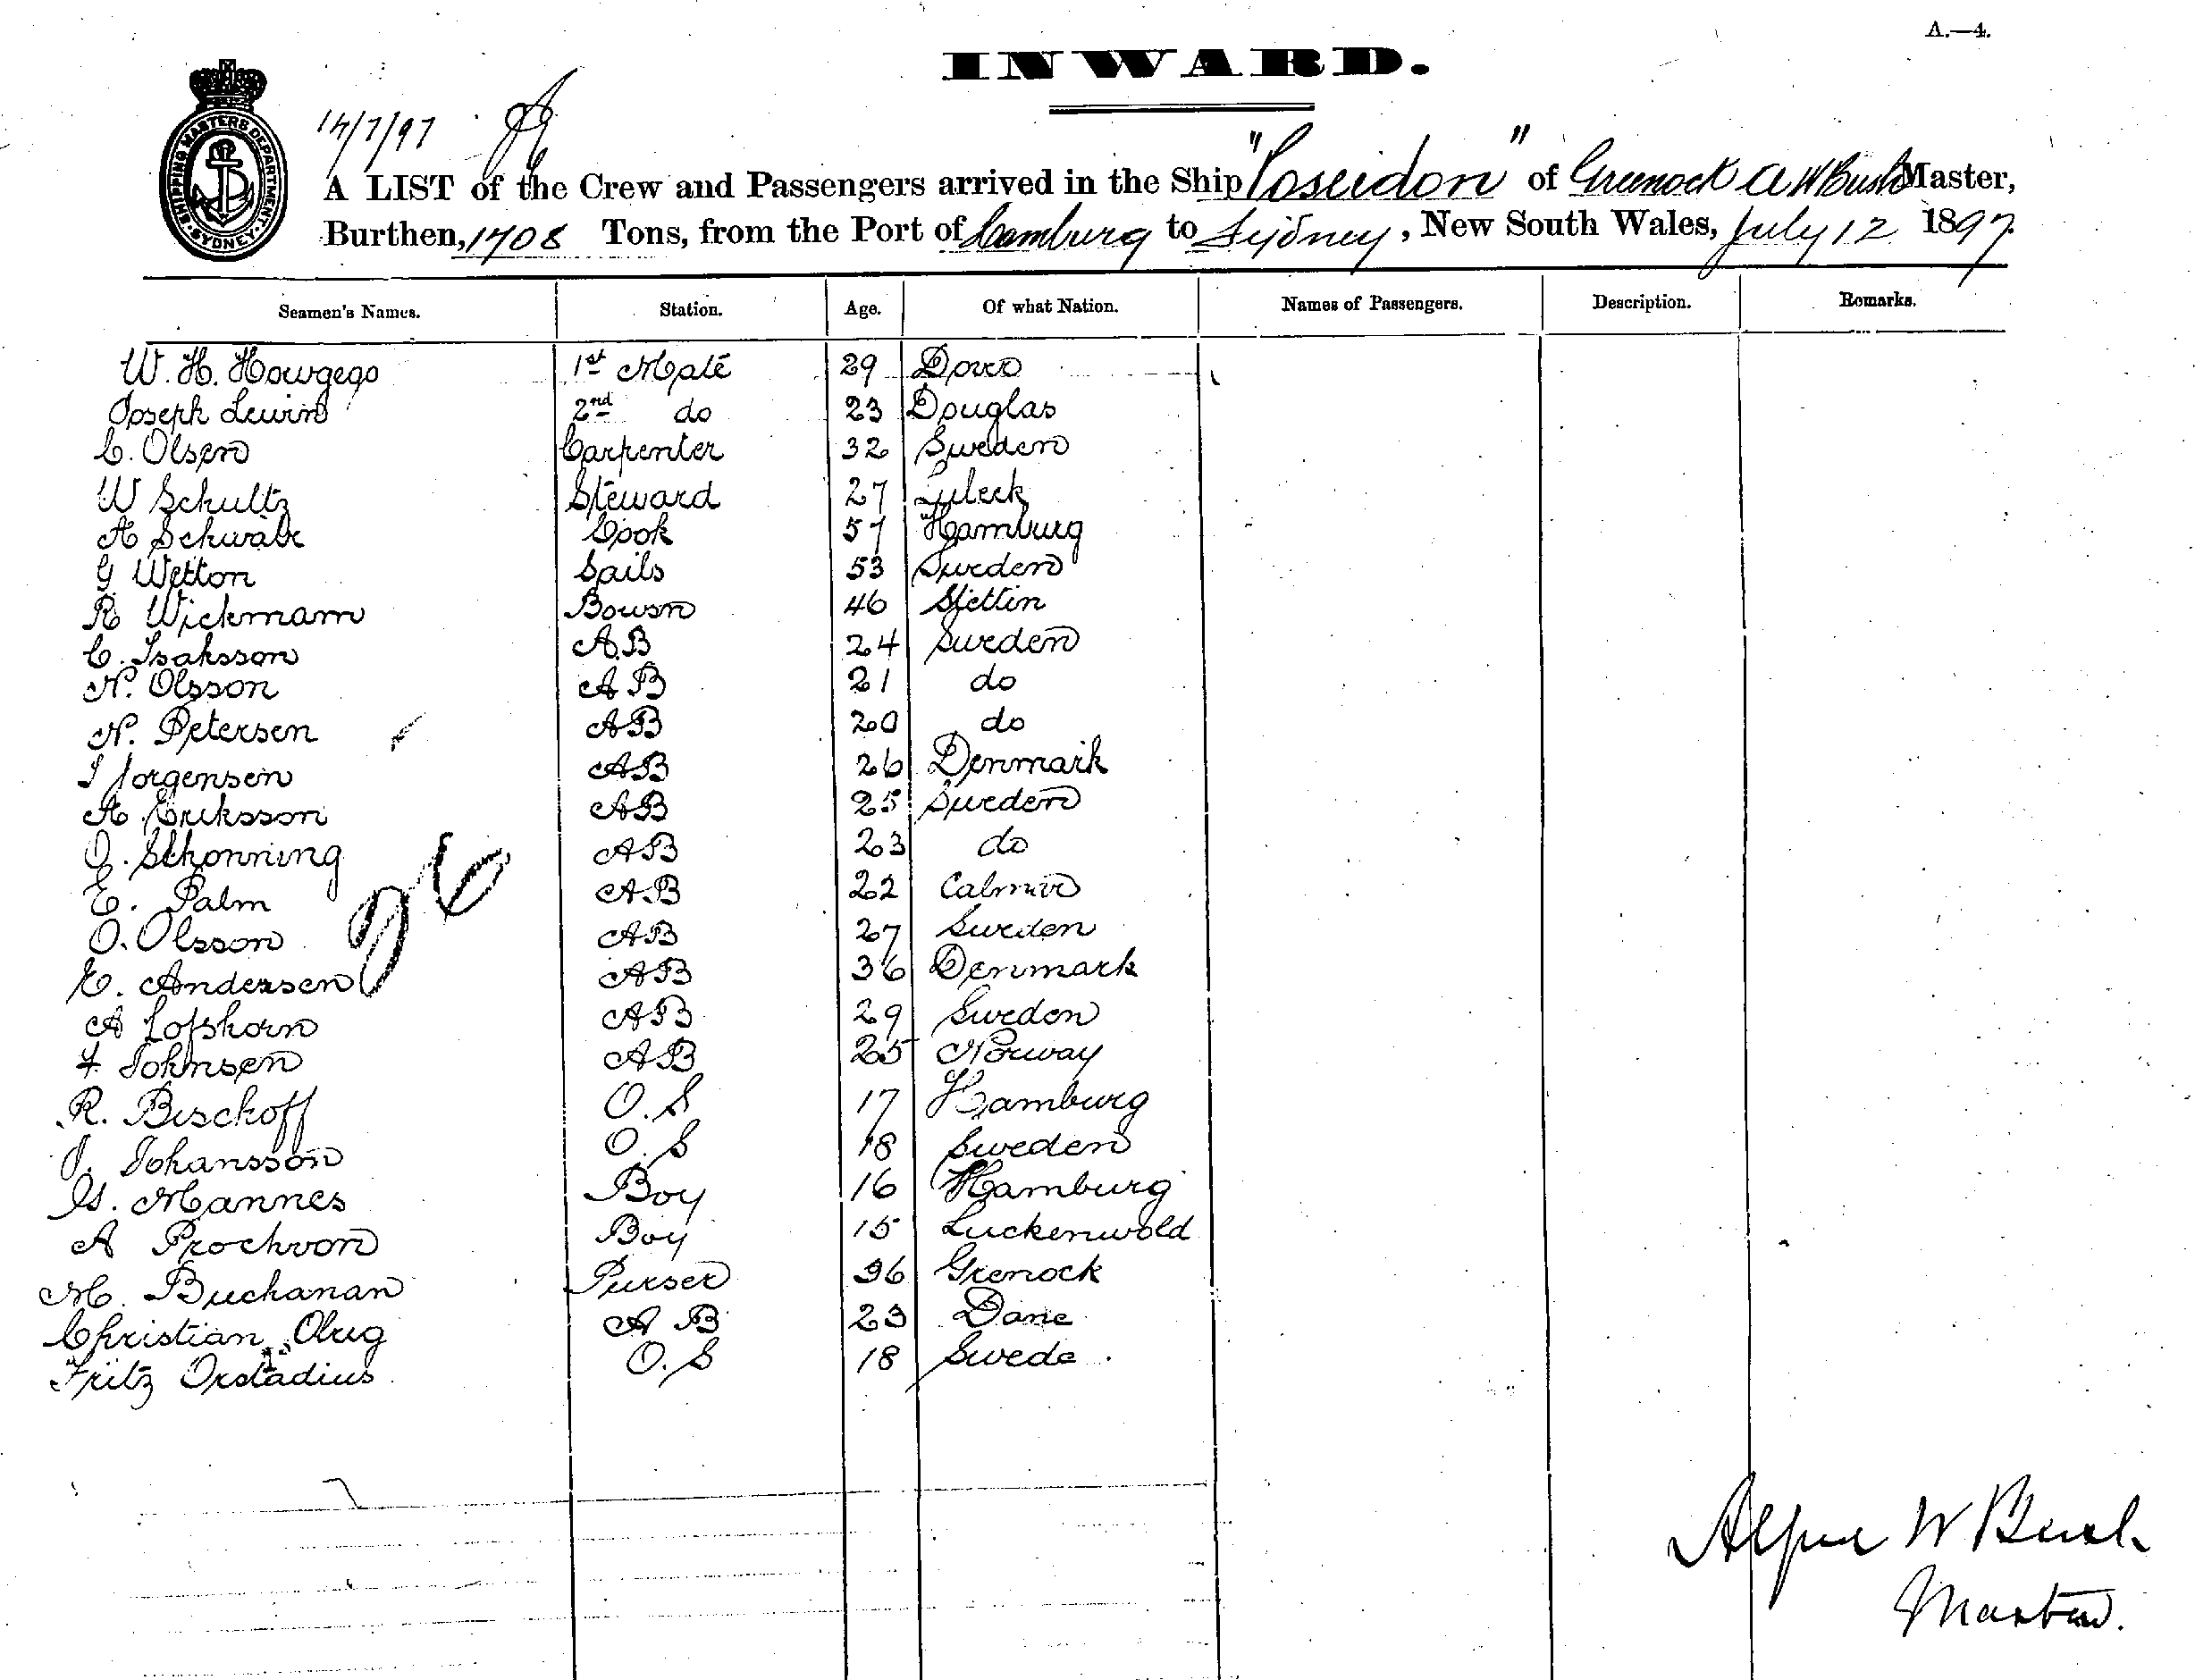 A.—4.
INWARD.
SHIPPING MASTERS DEPARTMENT · SYDNEY ·
14/7/97
A LIST of the Crew and Passengers arrived in the Ship "Poseidon" of Greenock A W Bush Master,
Burthen, 1708 Tons, from the Port of Hamburg to Sydney, New South Wales, July 12 1897.
Seamen's Names. Station. Age. Of what Nation. Names of Passengers. Description. Remarks.
W. H. Howgego 1st Mate 29 Dover
Joseph Lewin 2nd do 23 Douglas
C. Olsen Carpenter 32 Sweden
W Schultz Steward 27 Lubeck
A Schwabe Cook 57 Hamburg
G Wetton Sails 53 Sweden
R Wickmam Bowsn 46 Stettin
C. Isaksson A.B 24 Sweden
N. Olsson A B 21 do
N. Petersen AB 20 do
J Jorgensen AB 26 Denmark
A Eriksson AB 25 Sweden
O. Skhonning AB 23 do
E. Palm AB 22 Calmar
O. Olsson AB 27 Sweden
E. Andersen AB 36 Denmark
A Lofshorn AB 29 Sweden
F. Johnsen AB 25 Norway
R. Bischoff O.S 17 Hamburg
J. Johansson O.S 18 Sweden
G. Mannes Boy 16 Hamburg
A Prochvon Boy 15 Luckenwold
M. Buchanan Purser 36 Grenock
Christian Olug A B 23 Dane
Fritz Orstadius O.S 18 Swede.
26
Alfred W Bush
Master.